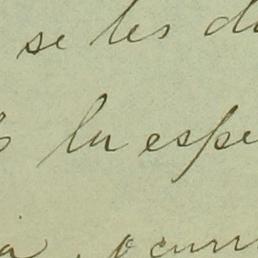 se les d
la espe
ocurri